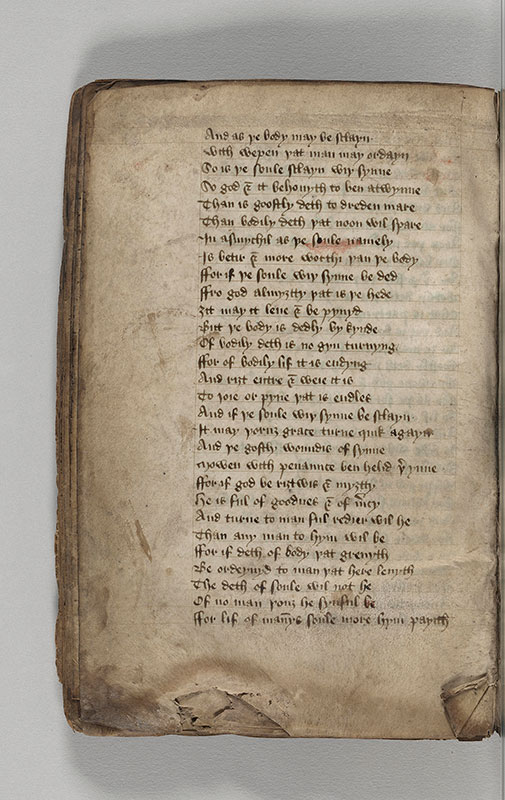 And as þe body may be sclayn
With wepen þat man may ordayn
So is þe soule sclayn wiþ synne
So god & it behouyth to ben atwynne
Than is goostly deth to dreden mare
Than bodily deth þat noon wil spare
In asmychil as þe soule namely
Is betir & more worthi þan þe body
ffor if þe soule wiþ synne be ded
ffro god almyȝtty þat is þe hede
ȝit may it leue & be pynyd
But þe body is dedly by kynde
Of bodily deth is no gyn turnyng
ffor of bodily lif it is endyng
And riȝt entre & weie it is
To ioie or pyne þat is endles
And if þe soule wiþ synne be sclayn
It may þoruȝ grace turne quik agayn
And þe gostly woundis of synne
Mowen with penaunce ben helid þͬ ynne
ffor if god be riȝtwis & myȝtty
He is ful of goodnes & of mͨcy
And turne to man ful redier wil he
Than any man to hym wil be
ffor if deth of body þat greuyth
Be ordeynyd to man þat here leuyth
The deth of soule wil not he
Of no man þouȝ he synful be
ffor lif of mannys soule more hym payith